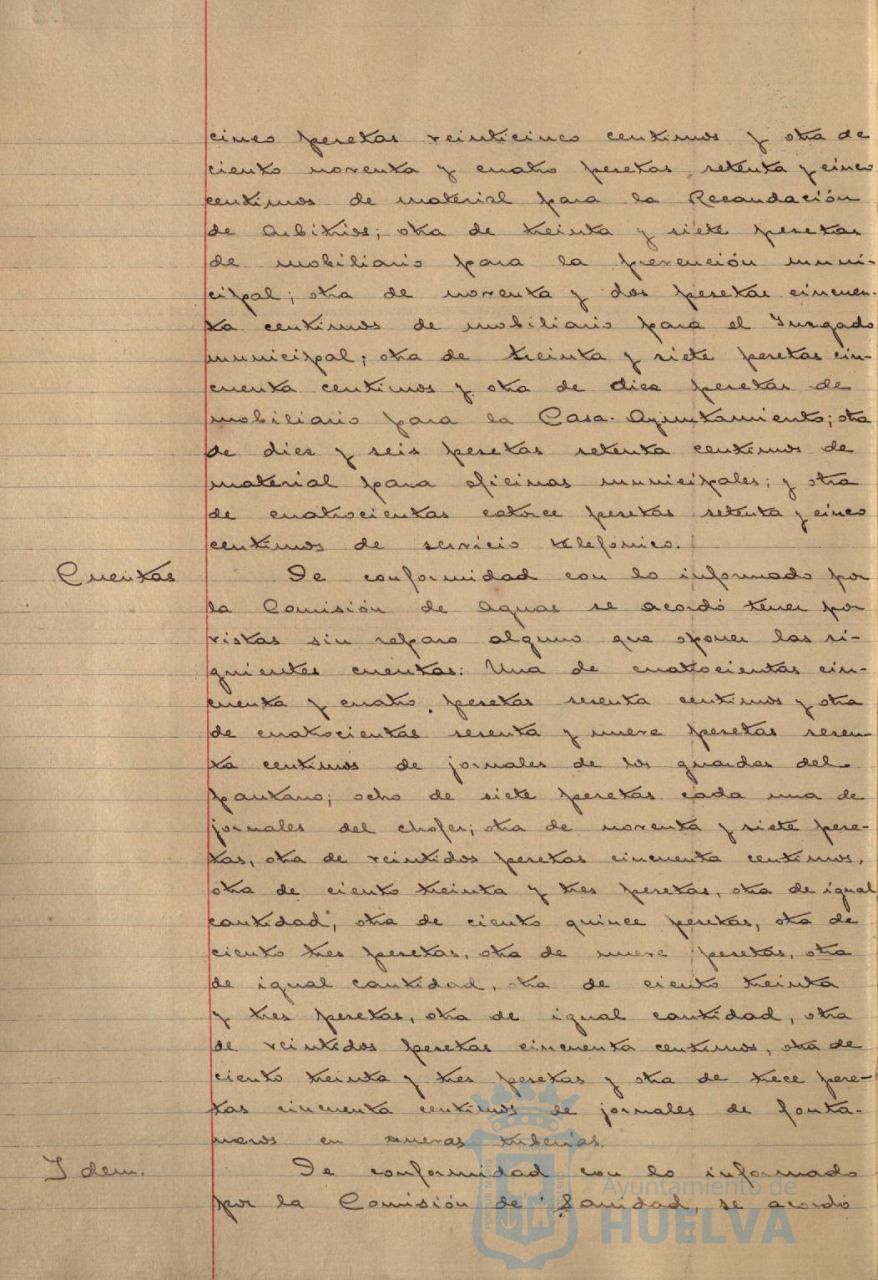 cinco pesetas veinticinco centimos y otra de
ciento noventa y cuatro pesetas setenta y cinco
centimos de material para la Recaudación
de Arbitrios; otra de treinta y siete pesetas
de mobiliario para la prevención muni-
cipal; otra de noventa y dos pesetas cincuen-
ta centimos de mobiliario para el Juzgado
municipal; otra de treinta y siete pesetas cin-
cuenta centimos y otra de diez pesetas de
mobiliario para la Casa-Ayuntamiento; otra
de diez y seis pesetas setenta centimos de
material para oficinas municipales; y otra
de cuatrocientas catorce pesetas setenta y cinco
centimos de servicio telefónico.
Cuentas De conformidad con lo informado por
la Comisión de Aguas se acordó tener por
vistas sin reparo alguno que oponer las si-
guientes cuentas: Una de cuatrocientas cin-
cuenta y cuatro pesetas sesenta centimos y otra
de cuatrocientas sesenta y nueve pesetas sesen-
ta centimos de jornales de los guardas del
pantano; ocho de siete pesetas cada una de
jornales del chofer; otra de noventa y siete pese-
tas, otra de veintidos pesetas cincuenta centimos,
otra de ciento treinta y tres pesetas, otra de igual
cantidad, otra de ciento quince pesetas, otra de
ciento tres pesetas, otra de nueve pesetas, otra
de igual cantidad, otra de ciento treinta
y tres pesetas, otra de igual cantidad, otra
de veintidos pesetas cincuenta centimos, otra de
ciento treinta y tres pesetas y otra de trece pese-
tas cincuenta centimos de jornales de fonta-
neros en nuevas tuberias.
Idem. De conformidad con lo informado
por la Comisión de Sanidad, se acordó
Ayuntamiento de
HUELVA